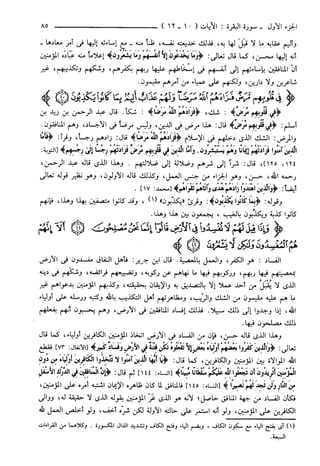 الجزء الأول - سورة البقرة : الآيات (١٠ - ١٢)
٨٥
وأليم عقابه ما لا قبل لها به، فذلك خديعته نفسه، ظناً منه - مع إساءته إليها في أمر معادها -
أنه إليها محسن، كما قال تعالى: ﴿وَمَا يَخْدَعُونَ إِلَّا أَنفُسَهُمْ وَمَا يَشْعُرُونَ﴾ إعلاماً منه عباده المؤمنين
أن المنافقين بإساءتهم إلى أنفسهم في إسخاطهم عليها ربهم بكفرهم، وشكهم وتكذيبهم، غير
شاعرين ولا دارين، ولكنهم على عمياء من أمرهم مقيمون.
﴿فِي قُلُوبِهِم مَّرَضٌ فَزَادَهُمُ اللَّهُ مَرَضًا وَلَهُمْ عَذَابٌ أَلِيمٌ بِمَا كَانُوا يَكْذِبُونَ﴾
﴿فِي قُلُوبِهِم مَّرَضٌ﴾ : شك، ﴿فَزَادَهُمُ اللَّهُ مَرَضًا﴾ : شكاً. قال عبد الرحمن بن زيد بن
أسلم: ﴿فِي قُلُوبِهِم مَّرَضٌ﴾ قال: هذا مرض في الدين، وليس مرضاً في الأجساد، وهم المنافقون.
والمرض: الشك الذي دخلهم في الإسلام ﴿فَزَادَهُمُ اللَّهُ مَرَضًا﴾ قال: زادهم رجساً، وقرأ: ﴿فَأَمَّا
الَّذِينَ آمَنُوا فَزَادَتْهُمْ إِيمَانًا وَهُمْ يَسْتَبْشِرُونَ. وَأَمَّا الَّذِينَ فِي قُلُوبِهِم مَّرَضٌ فَزَادَتْهُمْ رِجْسًا إِلَى رِجْسِهِمْ﴾ [التوبة:
١٢٤، ١٢٥]، قال: شراً إلى شرهم وضلالة إلى ضلالتهم . وهذا الذي قاله عبد الرحمن،
رحمه الله، حسن، وهو الجزاء من جنس العمل، وكذلك قاله الأولون، وهو نظير قوله تعالى
أيضاً: ﴿وَالَّذِينَ اهْتَدَوْا زَادَهُمْ هُدًى وَآتَاهُمْ تَقْوَاهُمْ﴾ [محمد: ١٧] .
وقوله: ﴿بِمَا كَانُوا يَكْذِبُونَ﴾ : وقرئ «يكذّبون» (١) ، وقد كانوا متصفين بهذا وهذا، فإنهم
كانوا كذبة ويكذبون بالغيب ، يجمعون بين هذا وهذا.
﴿وَإِذَا قِيلَ لَهُمْ لَا تُفْسِدُوا فِي الْأَرْضِ قَالُوا إِنَّمَا نَحْنُ مُصْلِحُونَ أَلَا إِنَّهُمْ
هُمُ الْمُفْسِدُونَ وَلَٰكِن لَّا يَشْعُرُونَ﴾
الفساد : هو الكفر، والعمل بالمعصية. قال ابن جرير: فأهل النفاق مفسدون في الأرض
بمعصيتهم فيها ربهم، وركوبهم فيها ما نهاهم عن ركوبه، وتضييعهم فرائضه، وشكهم في دينه
الذي لا يُقْبَلُ من أحد عملا إلا بالتصديق به والإيقان بحقيقته، وكذبهم المؤمنين بدعواهم غير
ما هم عليه مقيمون من الشك والريب، ومظاهرتهم أهل التكذيب بالله وكتبه ورسله على أولياء
الله، إذا وجدوا إلى ذلك سبيلا. فذلك إفساد المنافقين في الأرض، وهم يحسبون أنهم بفعلهم
ذلك مصلحون فيها.
وهذا الذي قاله حسن، فإن من الفساد في الأرض اتخاذ المؤمنين الكافرين أولياء، كما قال
تعالى: ﴿وَالَّذِينَ كَفَرُوا بَعْضُهُمْ أَوْلِيَاءُ بَعْضٍ إِلَّا تَفْعَلُوهُ تَكُن فِتْنَةٌ فِي الْأَرْضِ وَفَسَادٌ كَبِيرٌ﴾ [الأنفال: ٧٣] فقطع
الله الموالاة بين المؤمنين والكافرين، كما قال: ﴿يَا أَيُّهَا الَّذِينَ آمَنُوا لَا تَتَّخِذُوا الْكَافِرِينَ أَوْلِيَاءَ مِن دُونِ
الْمُؤْمِنِينَ أَتُرِيدُونَ أَن تَجْعَلُوا لِلَّهِ عَلَيْكُمْ سُلْطَانًا مُّبِينًا﴾ [النساء: ١٤٤] ثم قال: ﴿إِنَّ الْمُنَافِقِينَ فِي الدَّرْكِ الْأَسْفَلِ
مِنَ النَّارِ وَلَن تَجِدَ لَهُمْ نَصِيرًا﴾ [النساء: ١٤٥] فالمنافق لما كان ظاهره الإيمان اشتبه أمره على المؤمنين،
فكأن الفساد من جهة المنافق حاصل؛ لأنه هو الذي غرّ المؤمنين بقوله الذي لا حقيقة له، ووالى
الكافرين على المؤمنين، ولو أنه استمر على حالته الأولة لكن شره أخف، ولو أخلص العمل لله
(١) أي بفتح الياء مع سكون الكاف ، وبضم الياء وفتح الكاف وتشديد الذال المكسورة . وكلاهما من القراءات
السبعة.